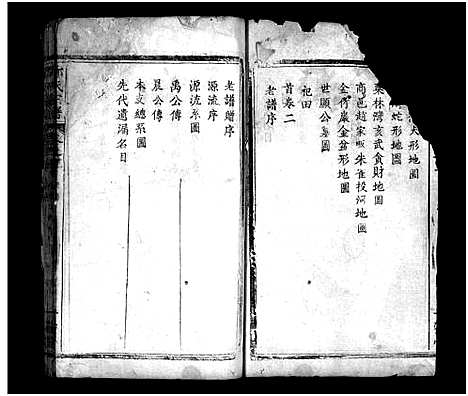 火形地圖
蛇形地圖
栗林灣亥武貪財地圖
商邑趙家畈朱雀投河地圖
金督嚴金盆形地圖
世顯公墓圖
祀田
首卷二
老譜序
老譜贈序
源流序
源流系圖
禹公傳
晨公傳
本支總系圖
先代遺漏名目